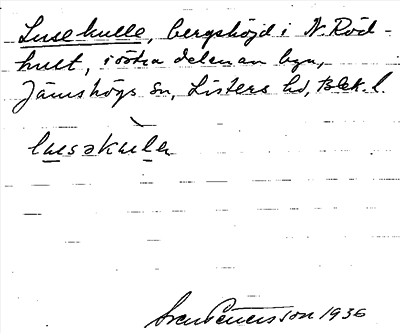 Lusekulle, bergshöjd i N. Röd-
hult, i östra delen av byn,
Jämshögs sn, Listers hd, Blek. l.
lusakulen
Sven Benersson 1936